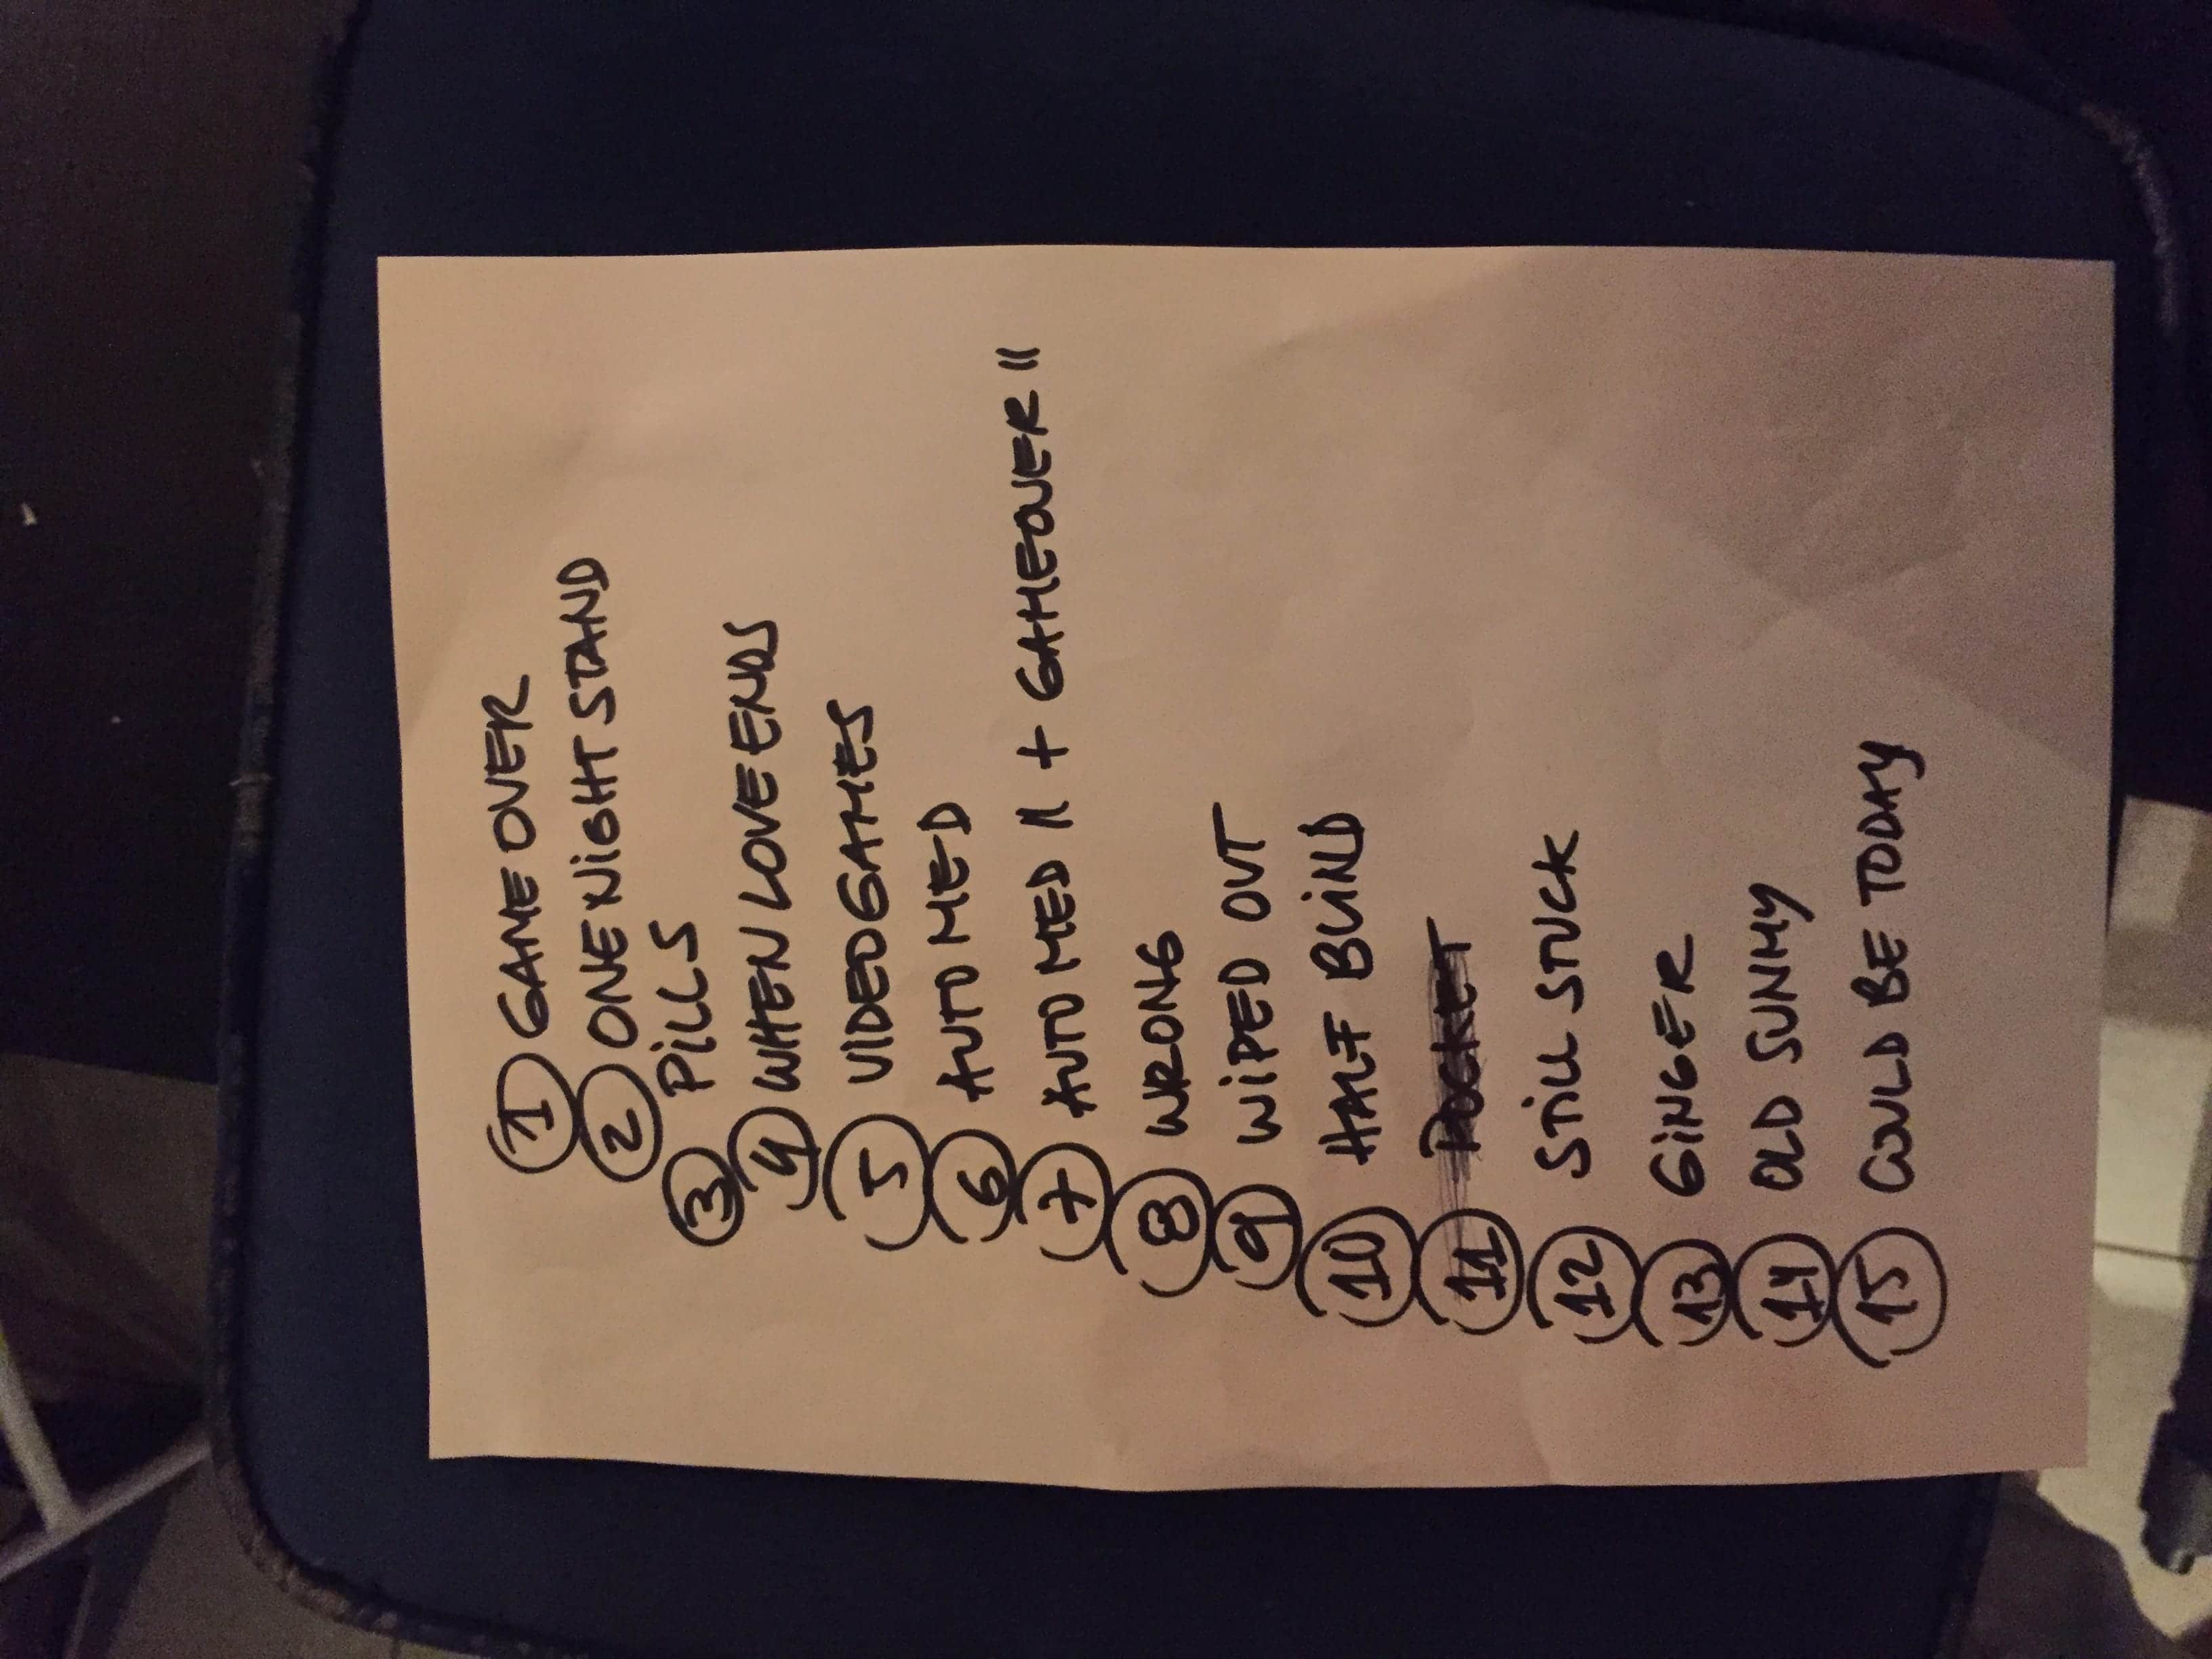 1 GAME OVER
2 ONE NIGHT STAND
3 PILLS
4 WHEN LOVE ENDS
5 VIDEOGAMES
6 AUTO MED
7 AUTO MED II + GAMEOVER II
8 WRONG
9 WIPED OUT
10 HALF BLIND
11 POCKET
12 STILL STUCK
13 GINGER
14 OLD SUNNY
15 COULD BE TODAY